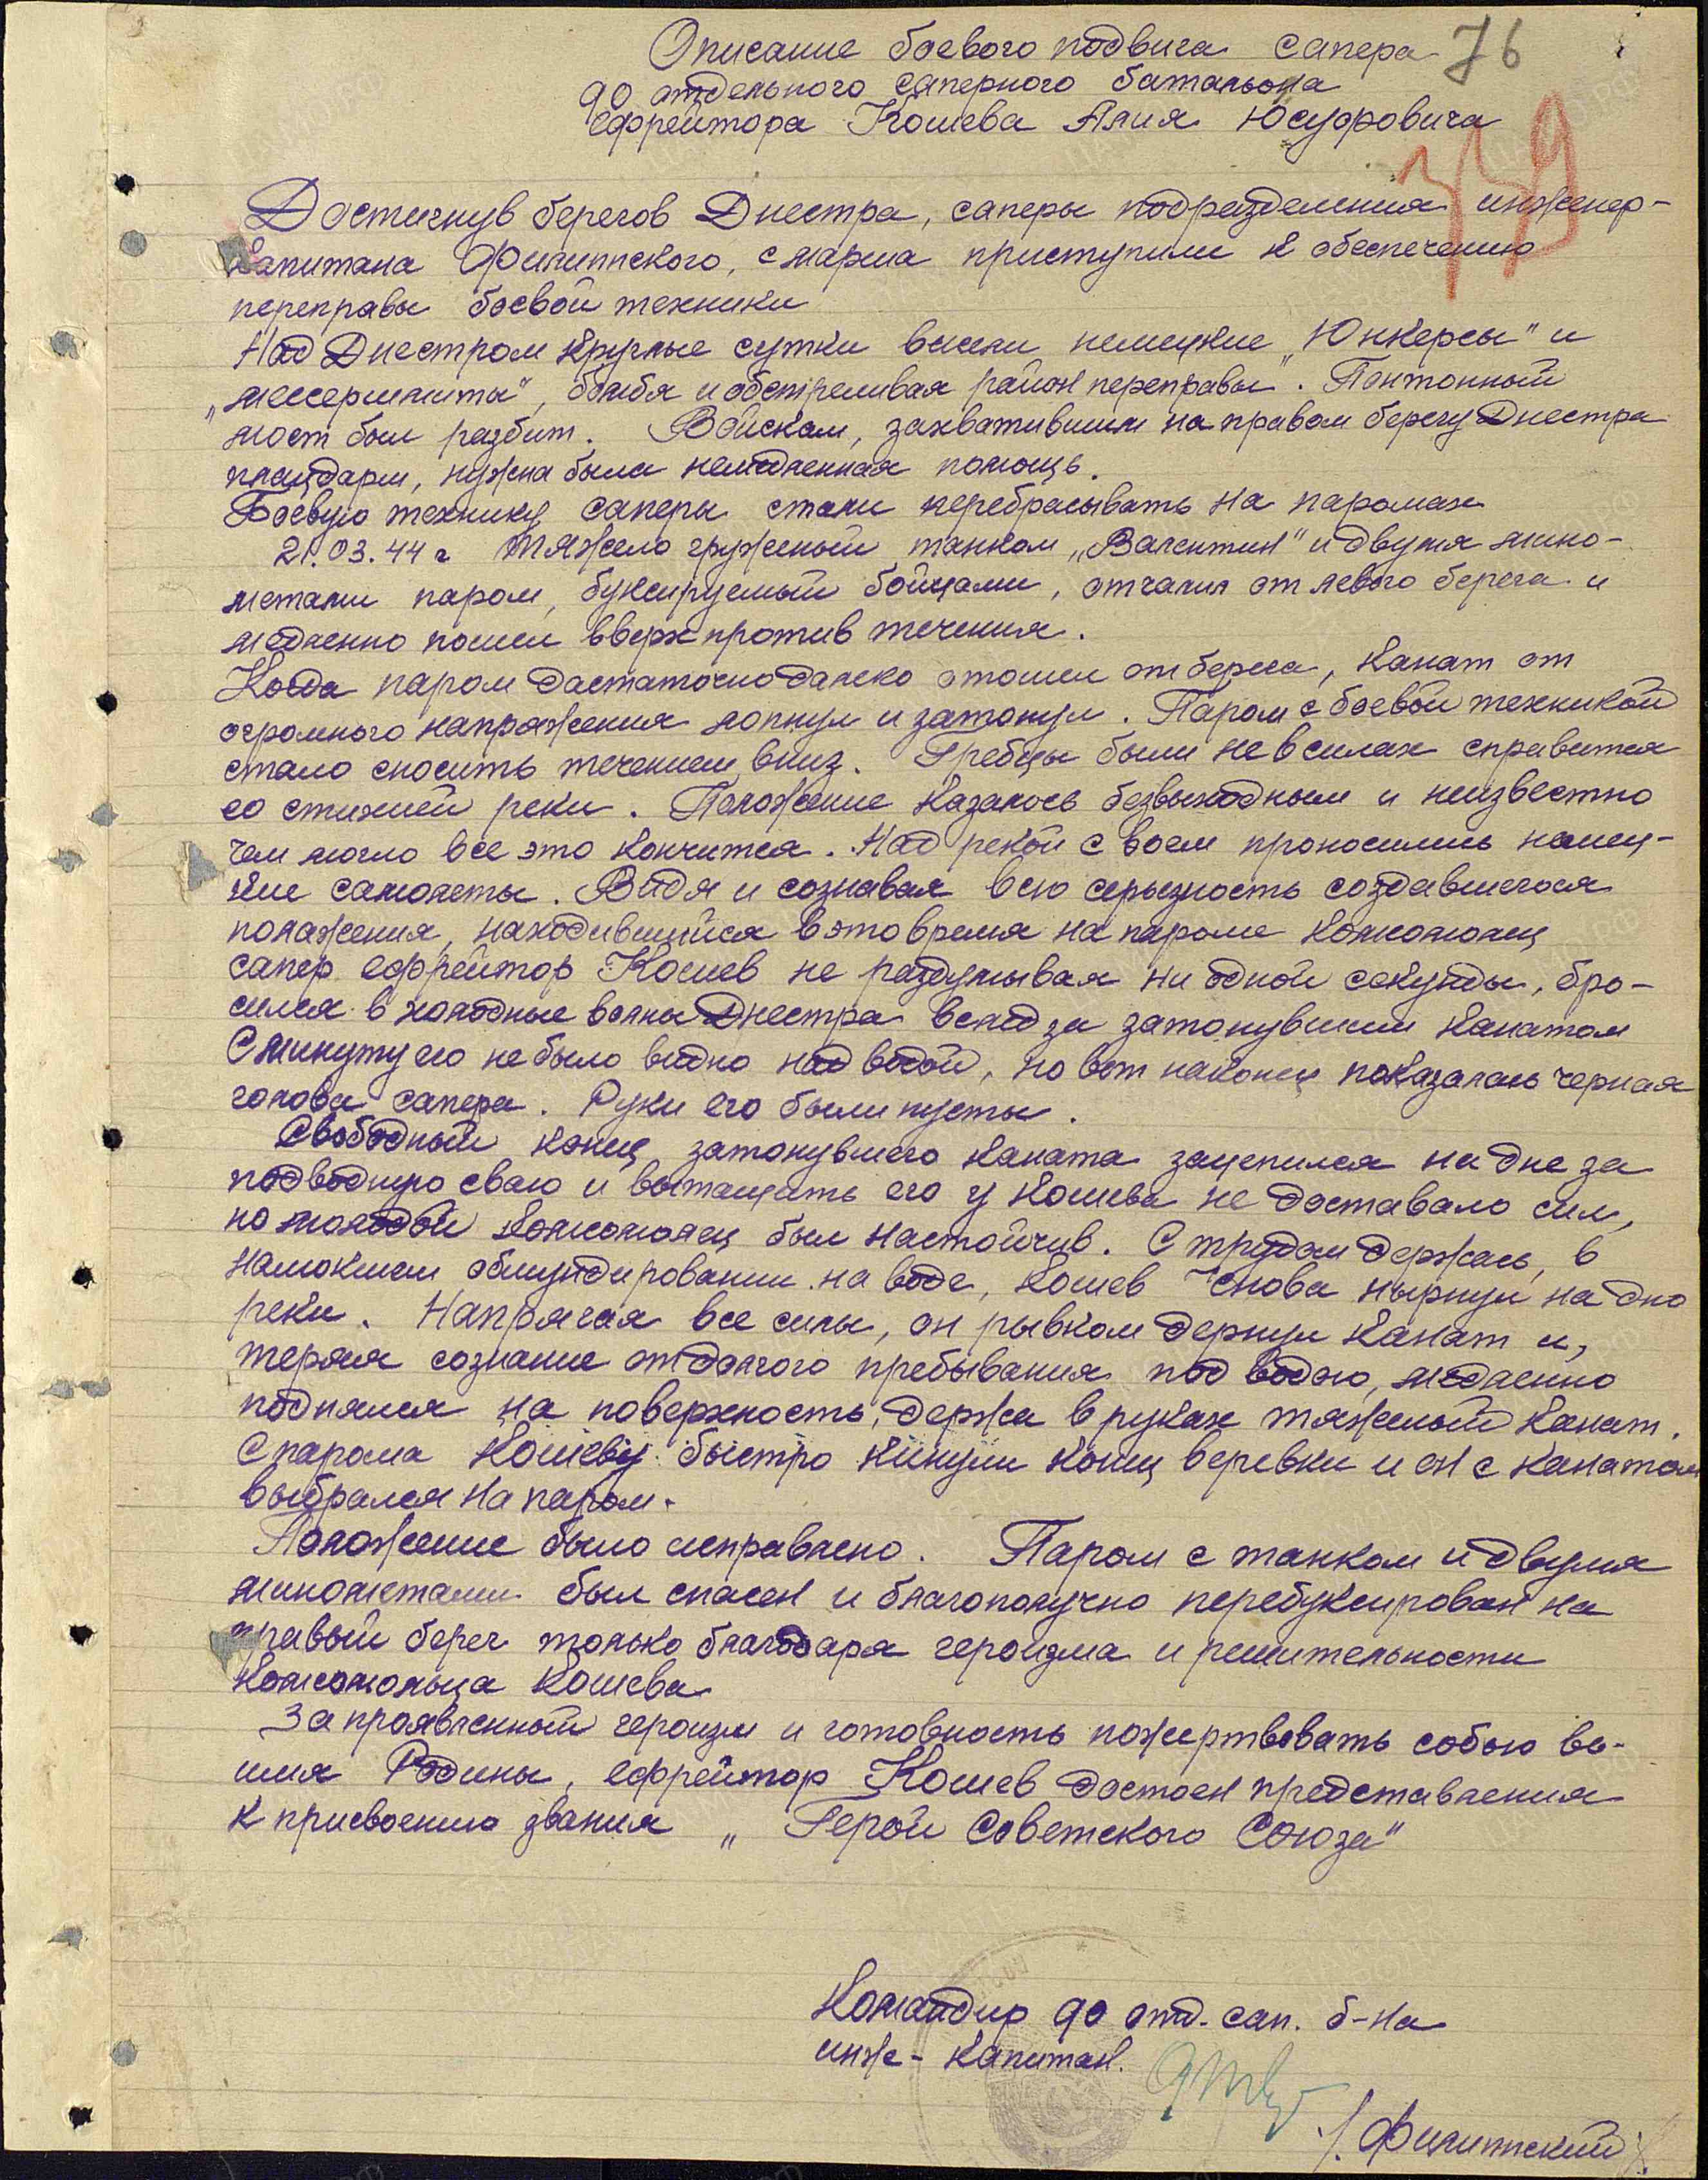 Описание боевого подвига сапера 76
90 отдельного саперного батальона
ефрейтора Кошева Алия Юсуфовича
Достигнув берегов Днестра, саперы подразделения инженер-
капитана Филиппского, с марша приступили к обеспечению
переправы боевой техники
Над Днестром круглые сутки висели немецкие „Юнкерсы" и
„мессершмиты", бомбя и обстреливая район переправы". Понтонный
мост был разбит. Войскам, захватившим на правом берегу Днестра
плацдарм, нужна была немедленная помощь.
Боевую технику саперы стали перебрасывать на паромах
21.03.44 г тяжело груженый танком „Валентин" и двумя мино-
метами паром, буксируемый бойцами, отчалил от левого берега и
медленно пошел вверх против течения.
Когда паром дастаточно далеко отошел от берега, канат от
огромного напряжения лопнул и затонул. Паром с боевой техникой
стало сносить течением вниз. Гребцы были не в силах справится
со стихией реки. Положение казалось безвыходным и неизвестно
чем могло все это кончится. Над рекой с воем проносились немец-
кие самолеты. Видя и сознавая всю серьезность создавшегося
положения, находившийся в это время на пароме комсомолец
сапер ефрейтор Кошев не раздумывая ни одной секунды, бро-
сился в холодные волны Днестра вслед за затонувшим канатом
С минуту его не было видно над водой, но вот наконец показалась черная
голова сапера. Руки его были пусты.
Свободный конец затонувшего каната зацепился на дне за
подводную сваю и вытащить его у Кошева не доставало сил,
но молодой комсомолец был настойчив. С трудом держась, в
намокшем обмундировании на воде, Кошев снова нырнул на дно
реки. Напрягая все силы, он рывком дернул канат и,
теряя сознание от долгого пребывания под водою, медленно
поднялся на поверхность, держа в руках тяжелый канат.
С парома Кошеву быстро кинули конец веревки и он с канатом
выбрался на паром.
Положение было исправлено. Паром с танком и двумя
минометами был спасен и благополучно перебуксирован на
правый берег только благодаря героизма и решительности
комсомольца Кошева
За проявленный героизм и готовность пожертвовать собою во-
имя Родины, ефрейтор Кошев достоен представления
к присвоению звания „ Герой Советского Союза"
Командир 90 отд. сап. б-на
инж- капитан.
/Филиппский/